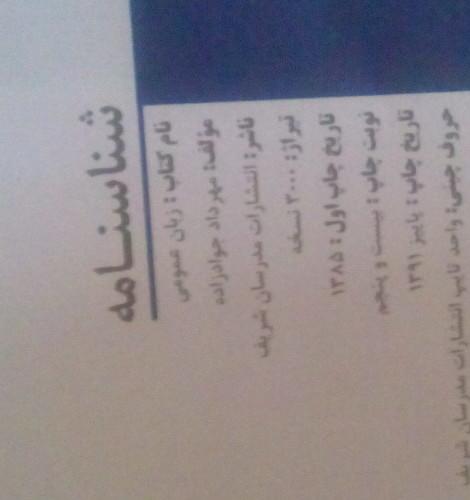 شناسنامه
نام کتاب: زبان عمومی
مؤلف: مهرداد جوادزاده
ناشر: انتشارات مدرسان شریف
تیراژ: ۳۰۰۰ نسخه
تاریخ چاپ اول: ۱۳۸۵
نوبت چاپ: بیست و پنجم
تاریخ چاپ: پاییز ۱۳۹۱
حروف چینی: واحد تایپ انتشارات مدرسان شریف